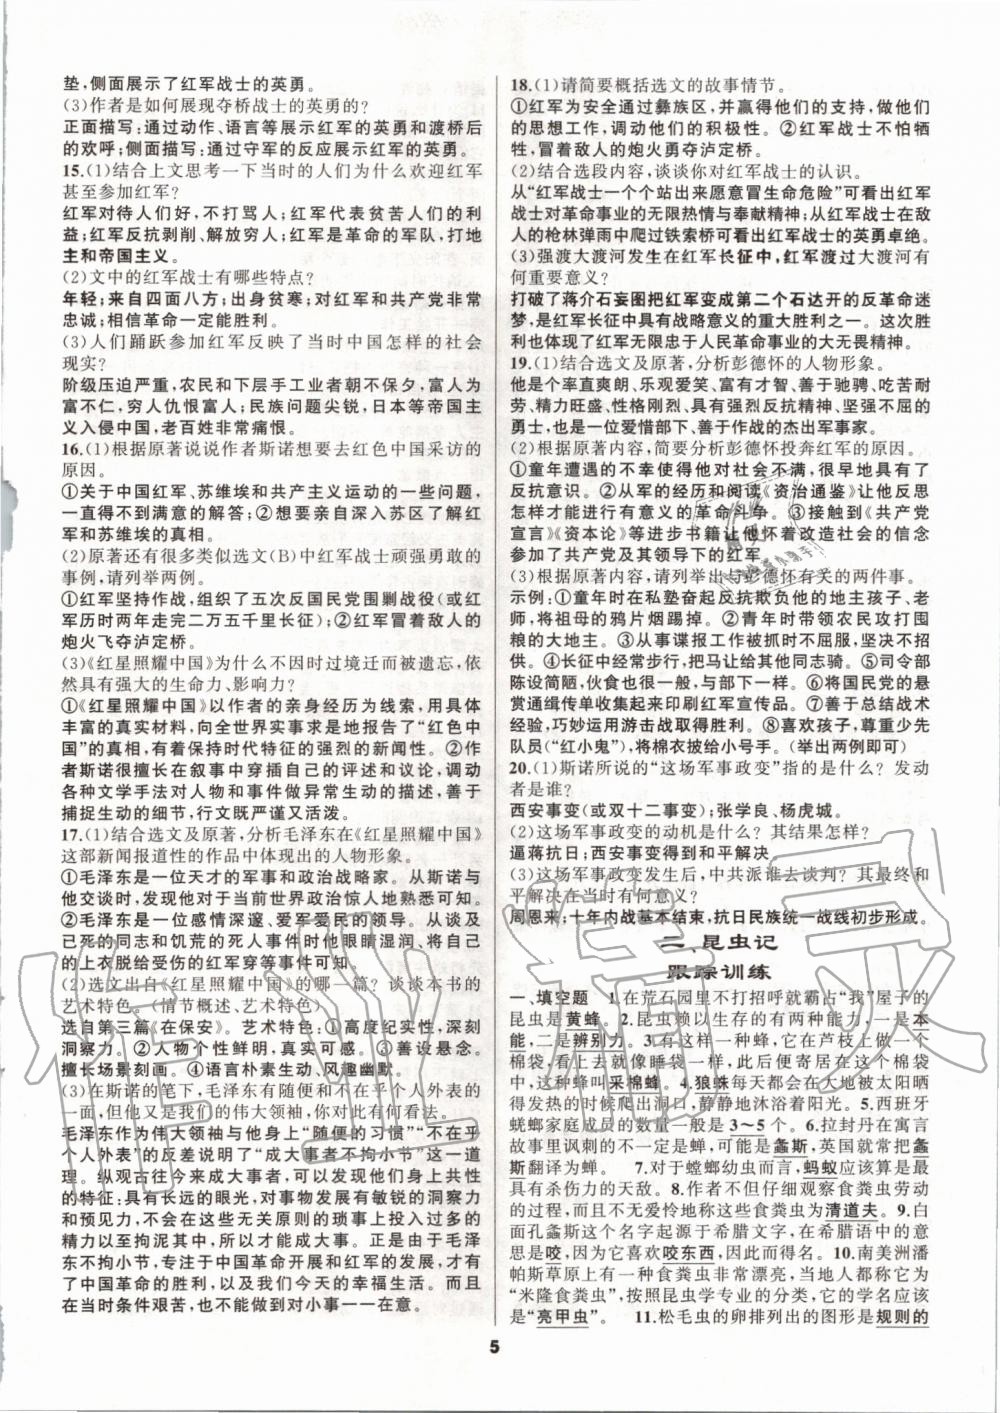 垫,侧面展示了红军战士的英勇。
(3)作者是如何展现夺桥战士的英勇的?
正面描写:通过动作、语言等展示红军的英勇和渡桥后
的欢呼;侧面描写:通过守军的反应展示红军的英勇。
15.(1)结合上文思考一下当时的人们为什么欢迎红军
甚至参加红军?
红军对待人们好,不打骂人;红军代表贫苦人民的利
益;红军反抗剥削、解放穷人;红军是革命的军队,打地
主和帝国主义。
(2)文中的红军战士有哪些特点?
年轻;来自四面八方;出身贫寒;对红军和共产党非常
忠诚;相信革命一定能胜利。
(3)人们踊跃参加红军反映了当时中国怎样的社会
现实?
阶级压迫严重,农民和下层手工业者朝不保夕,富人为
富不仁,穷人仇恨富人;民族问题尖锐,日本等帝国主义
入侵中国,老百姓非常痛恨。
16.(1)根据原著说说作者斯诺想要去红色中国采访的
原因。
①关于中国红军、苏维埃和共产主义运动的一些问题,
一直得不到满意的解答;②想要亲自深入苏区了解红军
和苏维埃的真相。
(2)原著还有很多类似选文(B)中红军战士顽强勇敢的
事例,请列举两例。
①红军坚持作战,组织了五次反国民党围剿战役(或红
军历时两年走完二万五千里长征);②红军冒着敌人的
炮火飞夺泸定桥。
(3)《红星照耀中国》为什么不因时过境迁而被遗忘,依
然具有强大的生命力、影响力?
①《红星照耀中国》以作者的亲身经历为线索,用具体
丰富的真实材料,向全世界实事求是地报告了“红色中
国”的真相,有着保持时代特征的强烈的新闻性。②作
者斯诺很擅长在叙事中插进自己的评述和议论,调动
各种文学手法对人物和事件做异常生动的描述,善于
捕捉生动的细节,行文既严谨又活泼。
17.(1)结合选文及原著,分析毛泽东在《红星照耀中国》
这部新闻报道性的作品中体现出的人物形象。
①毛泽东是一位天才的军事和政治战略家。从斯诺与
他交谈时,发现他对于当前世界政治惊人地熟悉可知。
②毛泽东是一位感情深邃、爱军爱民的领导。从谈及
已死的同志和饥荒的死人事件时眼睛湿润、将自己
的上衣脱给受伤的红军穿等事件可知。
(2)选文出自《红星照耀中国》的哪一篇?谈谈本书的
艺术特色。(情节概述、艺术特色)
选自第三篇《在保安》。艺术特色:①高度纪实性,深刻
洞察力。②人物个性鲜明,真实可感。③善设悬念,
擅长场景刻画。④语言朴素生动、风趣幽默。
(3)在斯诺的笔下,毛泽东有随便和不在乎个人外表的
一面,但他又是我们的伟大领袖,你对此有何看法。
毛泽东作为伟大领袖与他身上“随便的习惯”“不在乎
个人外表”的反差说明了“成大事者不拘小节”这一道
理。纵观古往今来成大事者,可以发现他们身上共性
的特征:具有长远的眼光,对事物发展有敏锐的洞察力
和实践力,而不会在这些无关原则的琐事上投入过多的
精力以至拘泥其中,所以能够成大事。正是由于毛泽
东不拘小节,专注于中国革命开展和红军的建设,才有
了中国革命的胜利,以及我们今天的幸福生活。而且
在当时条件艰苦,也不能做到对小事一一在意。
18.(1)请简要概括选文的故事情节。
①红军为安全通过彝族区,并赢得他们的支持,做他们
的思想工作,调动他们的积极性。②红军战士不怕牺
牲,冒着敌人的炮火勇夺泸定桥。
(2)结合选段内容,谈谈你对红军战士的认识。
从“红军战士一个个站出来愿意冒生命危险”可看出红军
战士对革命事业的无限热情与奉献精神;从红军战士在敌
人的枪林弹雨中爬过铁索桥可看出红军战士的英勇卓绝。
(3)强渡大渡河发生在红军长征中,红军渡过大渡河有
何重要意义?
打破了蒋介石妄图把红军变成第二个石达开的反革命迷
梦,是红军长征中具有战略意义的重大胜利之一。这次胜
利也体现了红军无限忠于人民革命事业的大无畏精神。
19.(1)结合选文及原著,分析彭德怀的人物形象。
他是个率直爽朗、乐观爱笑、富有才智、善于驰骋、吃苦耐
劳、精力旺盛、性格刚烈、具有强烈反抗精神、坚强不屈的
勇士,也是一位爱惜部下、善于作战的杰出军事家。
(2)根据原著内容,简要分析彭德怀投奔红军的原因。
①童年遭遇的不幸使得他对社会不满,很早地具有了
反抗意识。②从军的经历和阅读《资治通鉴》让他反思
怎样才能进行有意义的革命斗争。③接触到《共产党
宣言》《资本论》等进步书籍让他怀着改造社会的信念
参加了共产党及其领导下的红军。
(3)根据原著内容,请列举出与彭德怀有关的两件事。
示例:①童年时在私塾奋起反抗欺负他的地主孩子、老
师,将祖母的鸦片烟踢掉。②青年时带领农民攻打囤粮
的大地主。③从事谍报工作被抓时不屈服,坚决不招
供。④长征中经常步行,把马让给其他同志骑。⑤司令部
陈设简陋,伙食也很一般,与部下一样。⑥将国民党的悬
赏通缉传单收集起来印刷红军宣传品。⑦善于总结战术
经验,巧妙运用游击战取得胜利。⑧喜欢孩子,尊重少先
队员(“红小鬼”),将棉衣披给小号手。(举出两例即可)
20.(1)斯诺所说的“这场军事政变”指的是什么?发动
者是谁?
西安事变(或双十二事变);张学良、杨虎城。
(2)这场军事政变的动机是什么?其结果怎样?
逼蒋抗日;西安事变得到和平解决。
(3)这场军事政变发生后,中共派谁去谈判?其最终和
平解决在当时有何意义?
周恩来;十年内战基本结束,抗日民族统一战线初步形成。
二、昆虫记
跟踪训练
一、填空题 1.在荒石园里不打招呼就霸占“我”屋子的
昆虫是黄蜂。2.昆虫赖以生存的有两种能力,一是本
能,二是辨别力。3.有这样一种蜂,它在芦枝上做一个
棉袋,看上去就像睡袋一样,此后便寄居在这个棉袋
中,这种蜂叫采棉蜂。4.狼蛛每天都会在大地被太阳晒
得发热的时候爬出洞口,静静地沐浴着阳光。5.西班牙
蜣螂家庭成员的数量一般是3～5个。6.拉封丹在寓言
故事里讽刺的不是蝉,而是螽斯,英国就常把螽
斯翻译为蝉。 7.对于螳螂幼虫而言,蚂蚁应该算是最
具杀伤力的天敌。8.作者不但仔细观察食粪虫劳动
的过程,而且不无爱怜地称这些食粪虫为清道夫。9.白
面孔螽斯这个名字起源于希腊文字,在希腊语中的意
思是咬,因为它喜欢咬东西,因此而得名。10.南美洲潘
帕斯草原上有一种食粪虫非常漂亮,当地人都称它为
“米隆食粪虫”,按照昆虫学专业的分类,它的学名应该
是“亮甲虫”。 11.松毛虫的卵排列出的图形是规则的
5
作业精灵